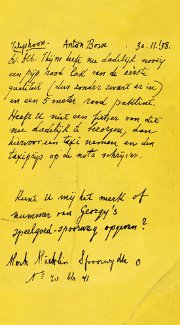 Telephoon. Anton Bosse 30.11.'38.
Dr. Alb. Thijm heeft nu dadelijk noodig
een pijp rood lak van de eerste
qualiteit (dus zonder zwart er in)
en een 5 meter rood paklint.
Heeft U niet een fietser van dit
nu dadelijk te bezorgen, dan
hiervoor een taxi nemen en den
taxiprijs op de nota schrijven.
Kunt U mij het merk of
nummer van Georgy's
speelgoed-spoorweg opgeven?
Merk Märklin Spoorwijdte 0